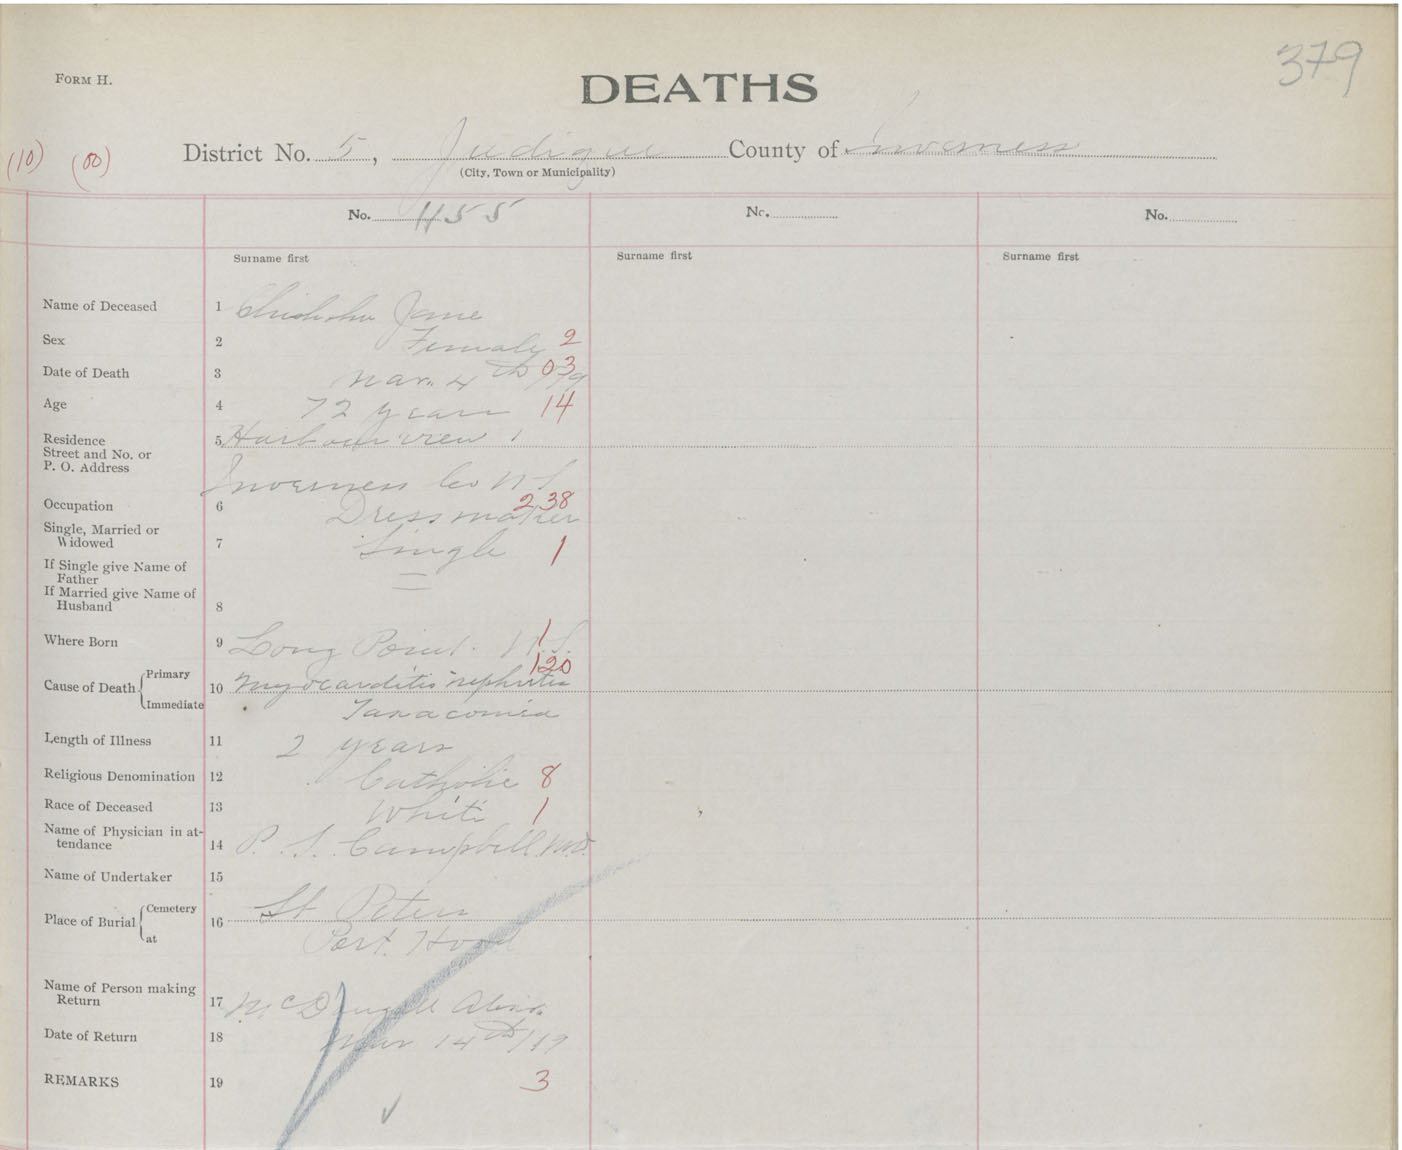 379
FORM H.
DEATHS
(10) (00) District No. 5, Judique County of Inverness
(City, Town or Municipality)
No. 1155 No. No.
Surname first Surname first Surname first
Name of Deceased 1 Chisholm Jane
Sex 2 Female 2
Date of Death 3 Mar. 4th /19 03
Age 4 72 years 14
Residence 5 Harbourview
Street and No. or
P. O. Address
Inverness Co N S
Occupation 6 Dressmaker 2 38
Single, Married or
Widowed 7 Single 1
If Single give Name of
Father
If Married give Name of
Husband 8
Where Born 9 Long Point. N.S. 1
120
Cause of Death Primary 10 Myocarditis nephritis
Immediate
Length of Illness 11 2 years
Religious Denomination 12 Catholic 8
Race of Deceased 13 White 1
Name of Physician in at-
tendance 14 P. S. Campbell M.D.
Name of Undertaker 15
Place of Burial Cemetery 16 St Peters
at Port Hood
Name of Person making
Return 17 McDougall
Date of Return 18 Mar 14th /19
REMARKS 19 3